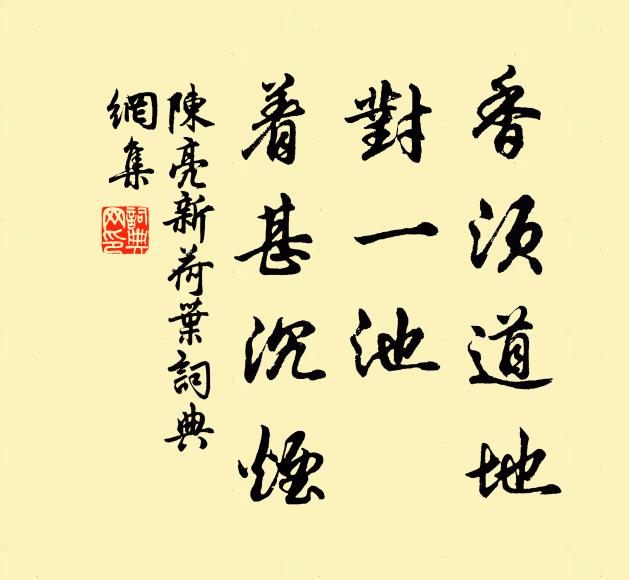 香須道地
對一池
着甚沉煙
陳亮新荷葉詞典
網集
詞典
网印